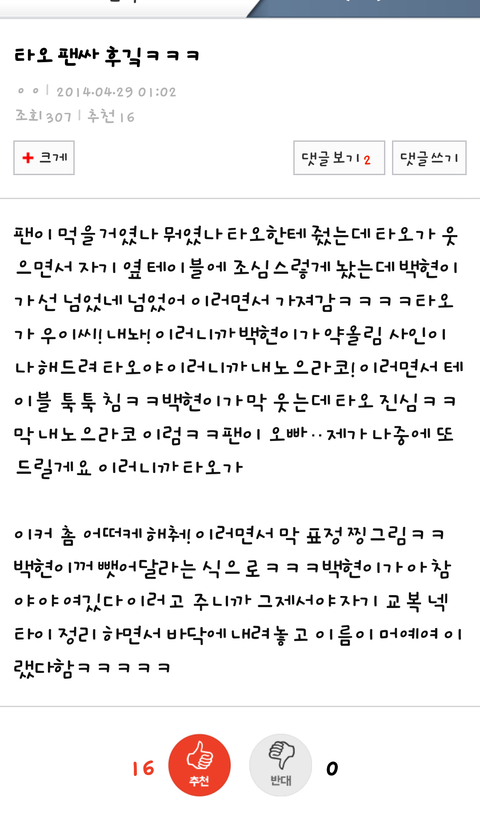 타오 팬싸 후깈ㅋㅋㅋ
ㅇㅇ | 2014.04.29 01:02
조회 307 | 추천 16
+ 크게
댓글보기 2
댓글쓰기
팬이 먹을거였나 뭐였나 타오한테 줬는데 타오가 웃
으면서 자기 옆 테이블에 조심스렇게 놨는데 백현이
가 선 넘었네 넘었어 이러면서 가져감ㅋㅋㅋㅋ타오
가 우이씨! 내놔! 이러니까 백현이가 약올림 사인이
나 해드려 타오야 이러니까 내노으라코! 이러면서 테
이블 툭툭 침ㅋㅋ백현이가 막 웃는데 타오 진심ㅋㅋ
막 내노으라코 이럼ㅋㅋ팬이 오빠.. 제가 나중에 또
드릴게요 이러니까 타오가
이커 촘 어떠케 해춰! 이러면서 막 표정 찡그림ㅋㅋ
백현이꺼 뺏어달라는 식으로ㅋㅋㅋ백현이가 아 참
야야 여깄다 이러고 주니까 그제서야 자기 교복 넥
타이 정리 하면서 바닥에 내려놓고 이름이 머예여 이
랬다함ㅋㅋㅋㅋㅋ
16 추천 반대 0